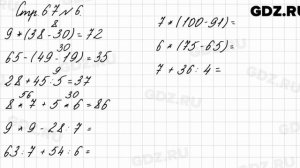 GDZ.RU
Стр. 67 № 6.
8
9 * (38 - 30) = 72
30
65 - (49 - 19) = 35
9
28 + 45 : 5 = 37
56 30
8 * 7 + 5 * 6 = 86
9 * 9 - 28 : 7 =
63 : 7 + 54 : 6 =
7 * (100 - 91) =
6 * (75 - 65) =
7 + 36 : 4 =
GDZ.RU